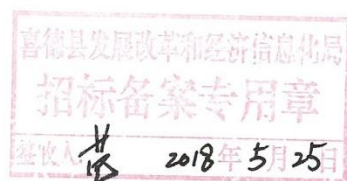 喜德县发展改革和经济信息化局
招标备案专用章
签收人: 2018年5月25日